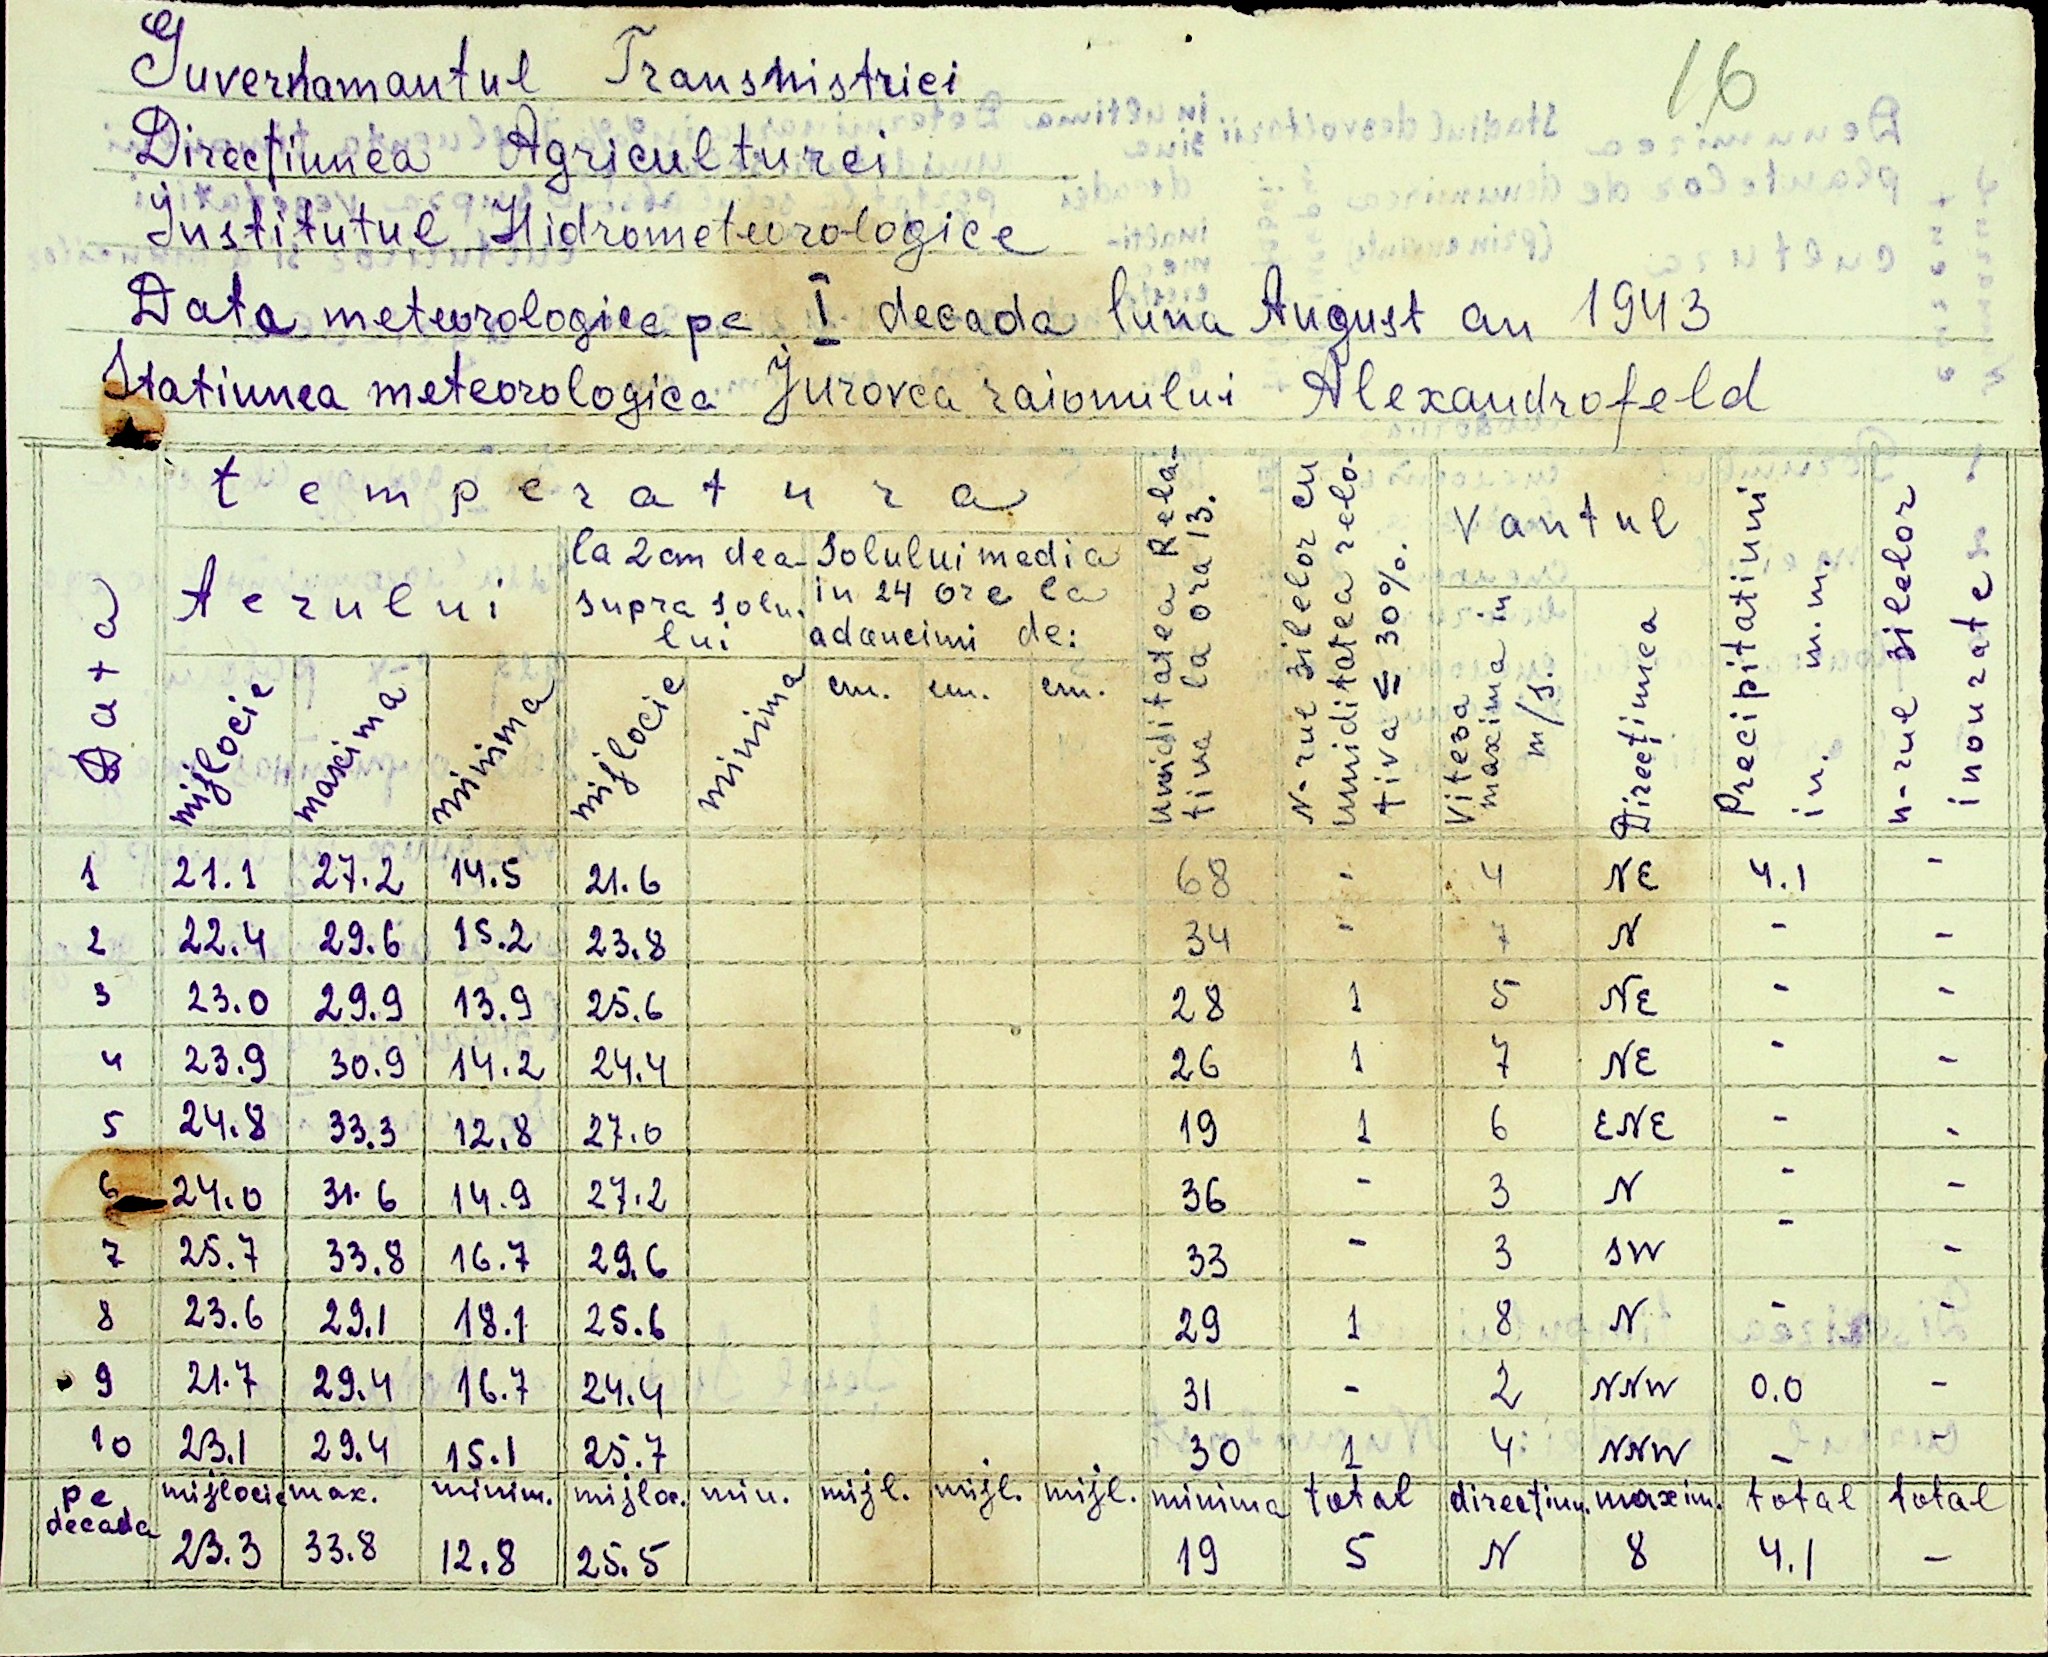 16
Guvernamantul Transnistriei
Direcţiunea Agriculturei
Institutul Hidrometeorologice
Data meteorologice pe I decada luna August an 1943
Statiunea meteorologica Jurovca raionului Alexandrofeld
Data
temperatura
Aerului
la 2 cm dea-
supra solu-
lui
Solului media
in 24 ore la
adancimi de:
mijlocie
maxima
minima
mijlocie
minima
cm. cm. cm.
Umiditatea Rela-
tiva la ora 13.
N-rul zilelor cu
umiditatea rela-
tiva ≤ 30%.
Vantul
Viteza
maxima in
m/s.
Direcţiunea
Precipitatiuni
in. m.m.
n-rul zilelor
inourate
1 21.1 27.2 14.5 21.6 68 - 4 NE 4.1 -
2 22.4 29.6 15.2 23.8 34 - 7 N - -
3 23.0 29.9 13.9 25.6 28 1 5 NE - -
4 23.9 30.9 14.2 24.4 26 1 7 NE - -
5 24.8 33.3 12.8 27.0 19 1 6 ENE - -
6 24.0 31.6 14.9 27.2 36 - 3 N - -
7 25.7 33.8 16.7 29.6 33 - 3 SW - -
8 23.6 29.1 18.1 25.6 29 1 8 N - -
9 21.7 29.4 16.7 24.4 31 - 2 NNW 0.0 -
10 23.1 29.4 15.1 25.7 30 1 4 NNW - -
pe decada mijlocie max. minim. mijloc. min. mijl. mijl. mijl. minima total direcţiun. maxim. total total
23.3 33.8 12.8 25.5 19 5 N 8 4.1 -